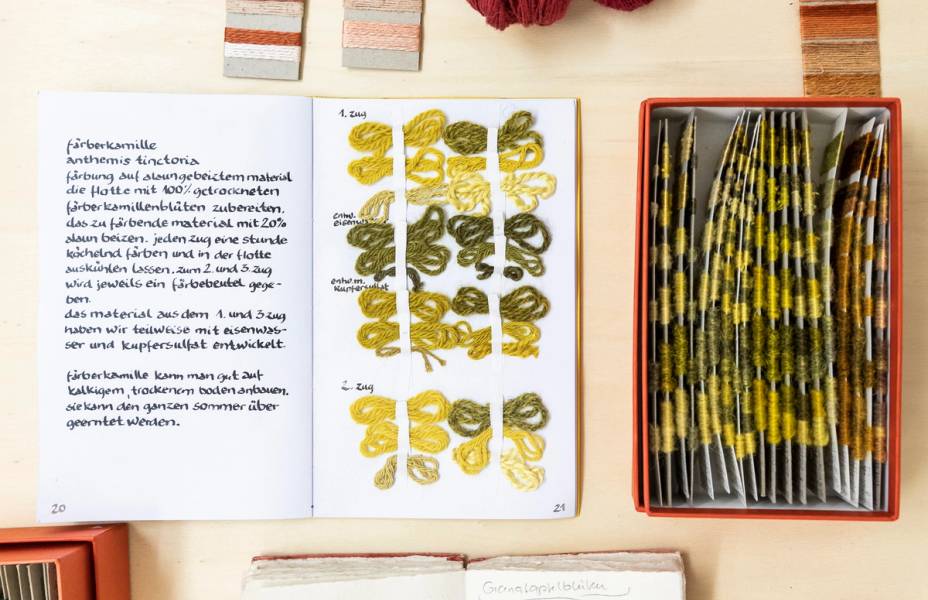 färberkamille
anthemis tinctoria
färbung auf alaungebeiztem material
die flotte mit 100% getrockneten
färberkamillenblüten zubereiten,
das zu färbende material mit 20%
alaun beizen. jeden zug eine stunde
köchelnd färben und in der flotte
auskühlen lassen. zum 2. und 3. zug
wird jeweils ein färbebeutel gege-
ben.
das material aus dem 1. und 3 zug
haben wir teilweise mit eisenwas-
ser und kupfersulfat entwickelt.
färberkamille kann man gut auf
kalkigem, trockenem boden anbauen.
sie kann den ganzen sommer über
geerntet werden.
20
1. zug
entw.
entw. m.
Kupfersulfat
2. zug
21
Granatapfelblüten